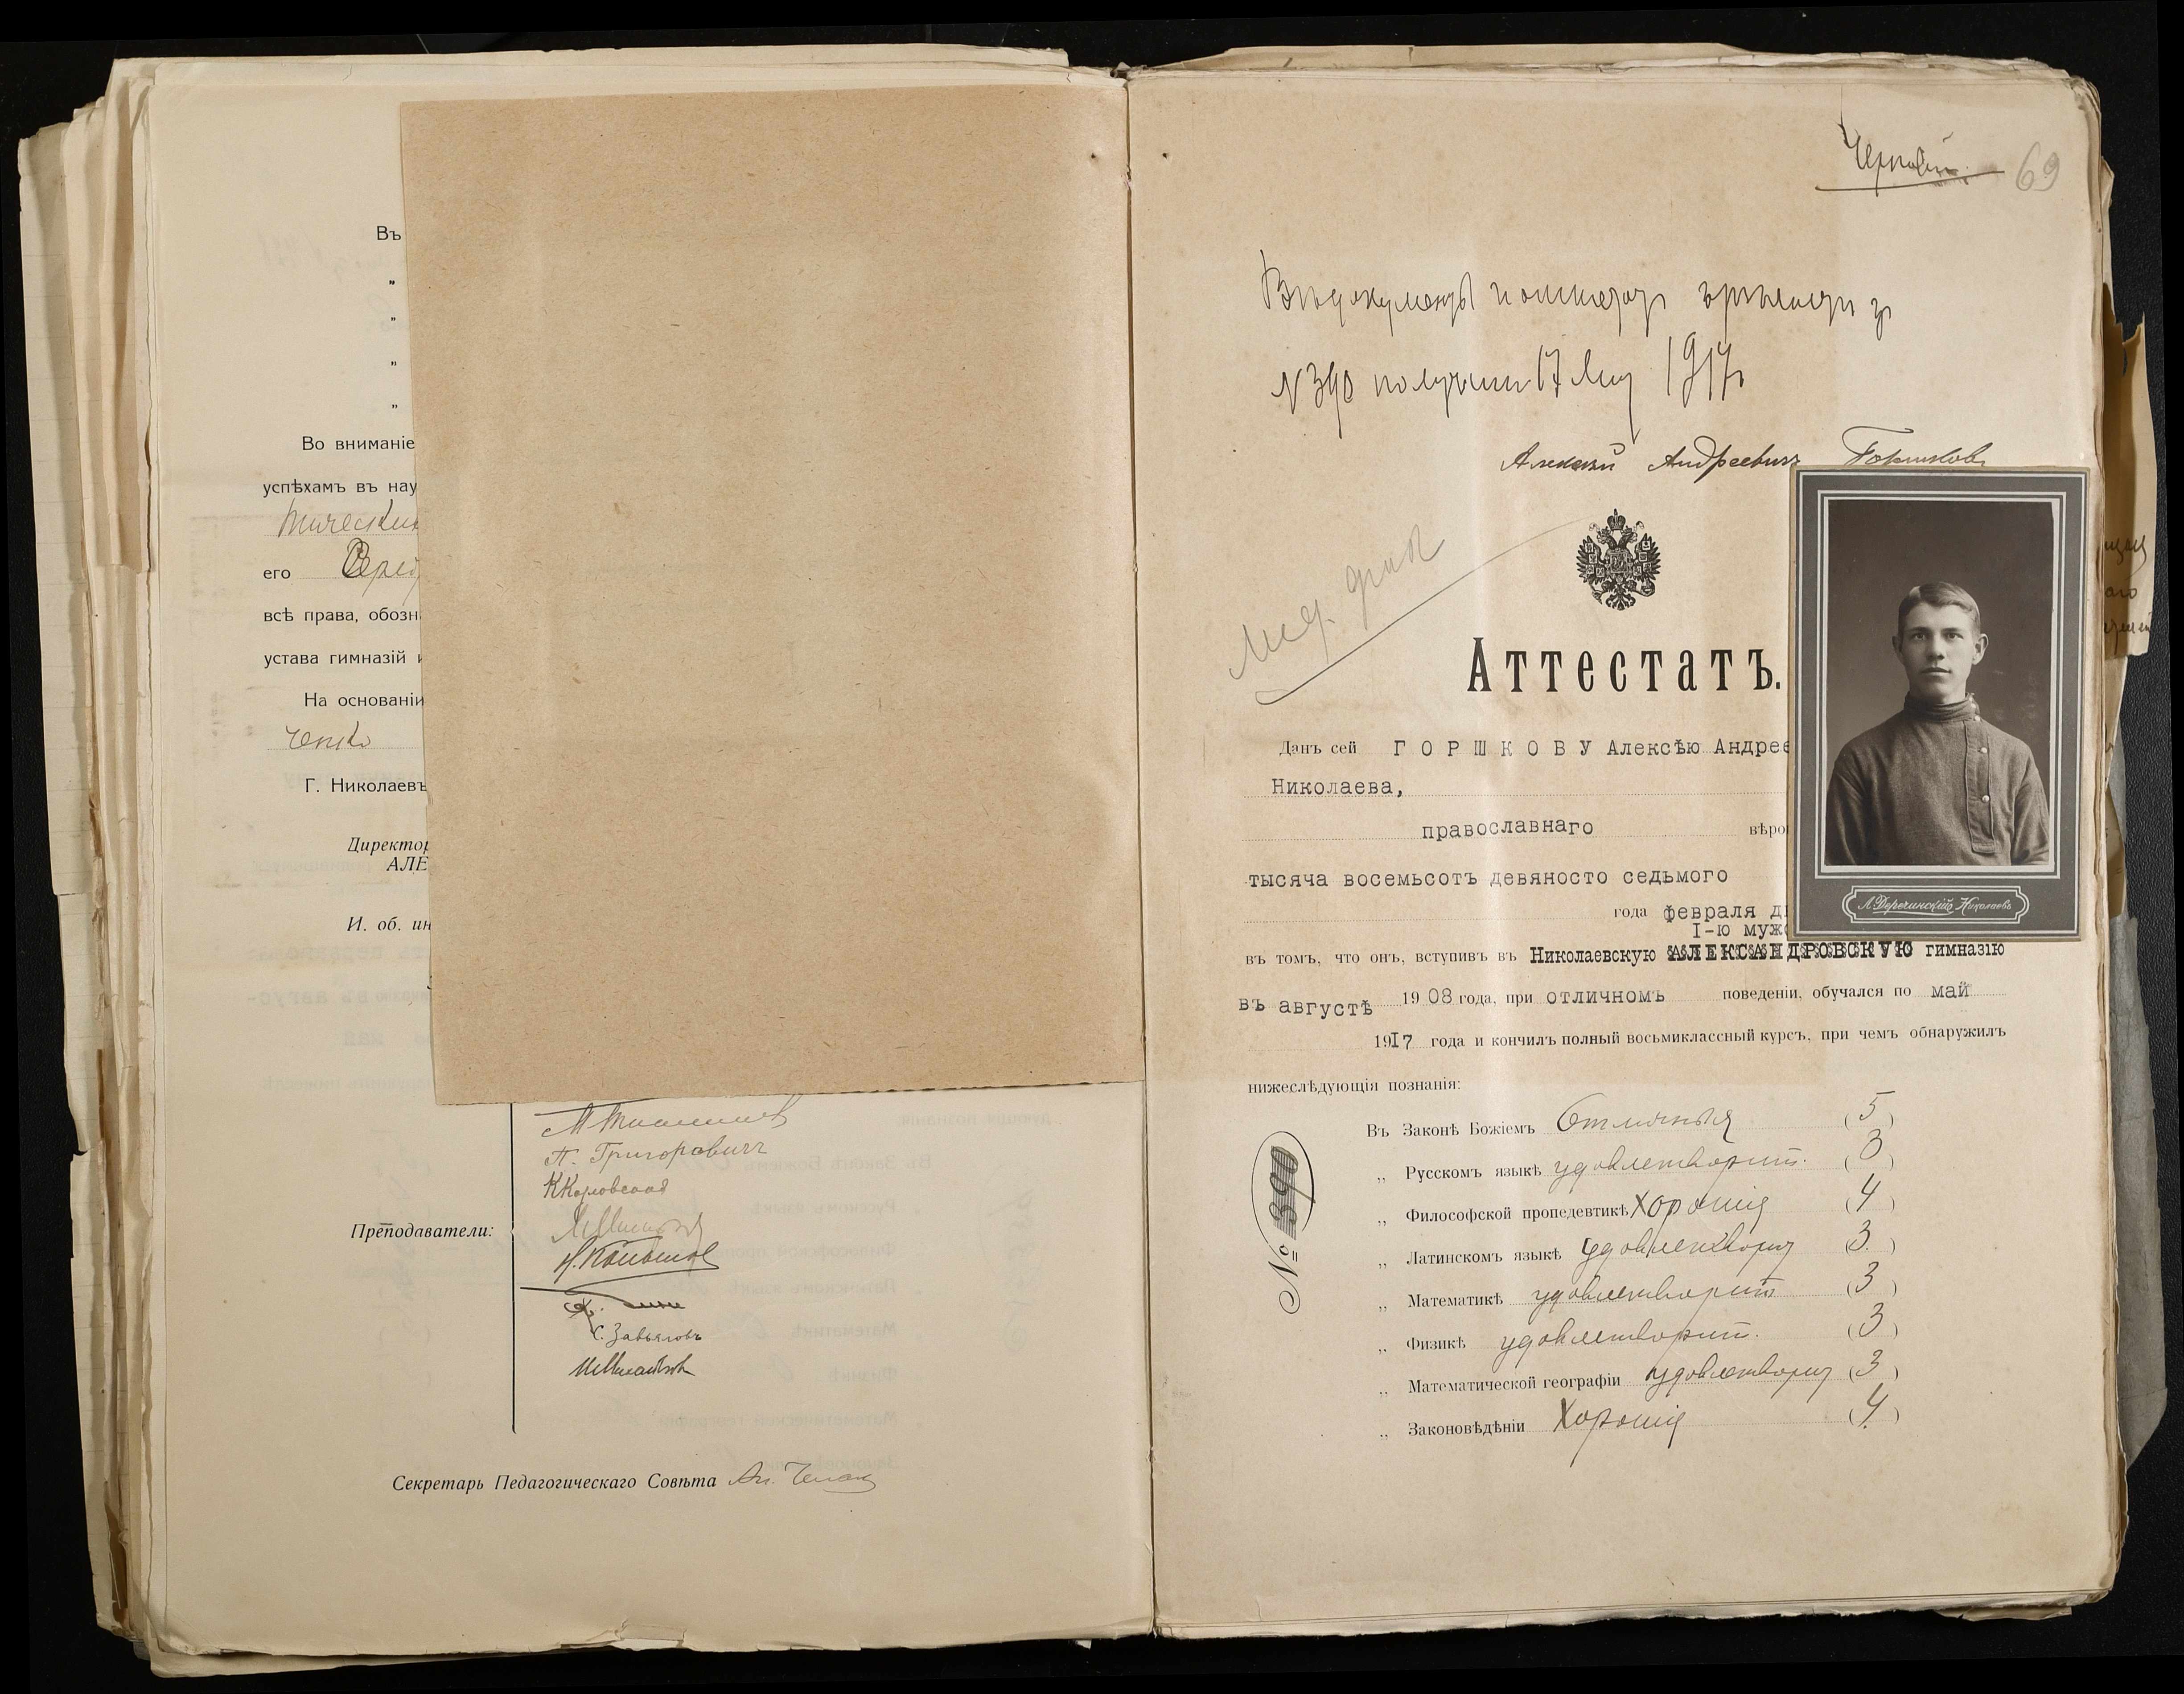 Въ
„
„
„
„
Во вниманіе
успѣхамъ въ нау
тическим
его
всѣ права, обозн
устава гимназій и
На основаніи
ченко
Г. Николаевъ
Директор
АЛЕ
И. об. ин
П. Григоровичъ
Преподаватели:
С. Завьяловъ
Секретарь Педагогическаго Совѣта
69
Всѣ документы и аттестатъ зрѣлости за
№ 390 получилъ 17 1917
Алексѣй Андреевичъ Горшковъ
Мед. фак
Аттестатъ.
Данъ сей ГОРШКОВУ Алексѣю Андрее
Николаева,
православнаго вѣро
тысяча восемьсотъ девяносто седьмого
года февраля д
I-ю муж
въ томъ, что онъ, вступивъ въ Николаевскую АЛЕКСАНДРОВСКУЮ гимназію
въ августѣ 1908 года, при отличномъ поведеніи, обучался по май
1917 года и кончилъ полный восьмиклассный курсъ, при чемъ обнаружилъ
нижеслѣдующія познанія:
Въ Законѣ Божіемъ Отличныя (5)
„ Русскомъ языкѣ удовлетворит. (3)
„ Философской пропедевтикѣ Хорошія (4)
„ Латинскомъ языкѣ удовлетворит (3)
„ Математикѣ удовлетворит (3)
„ Физикѣ удовлетворит. (3)
„ Математической географіи удовлетворит (3)
„ Законовѣдѣніи Хорошія (4)
№ 390
Л. Деречинскій Николаевъ